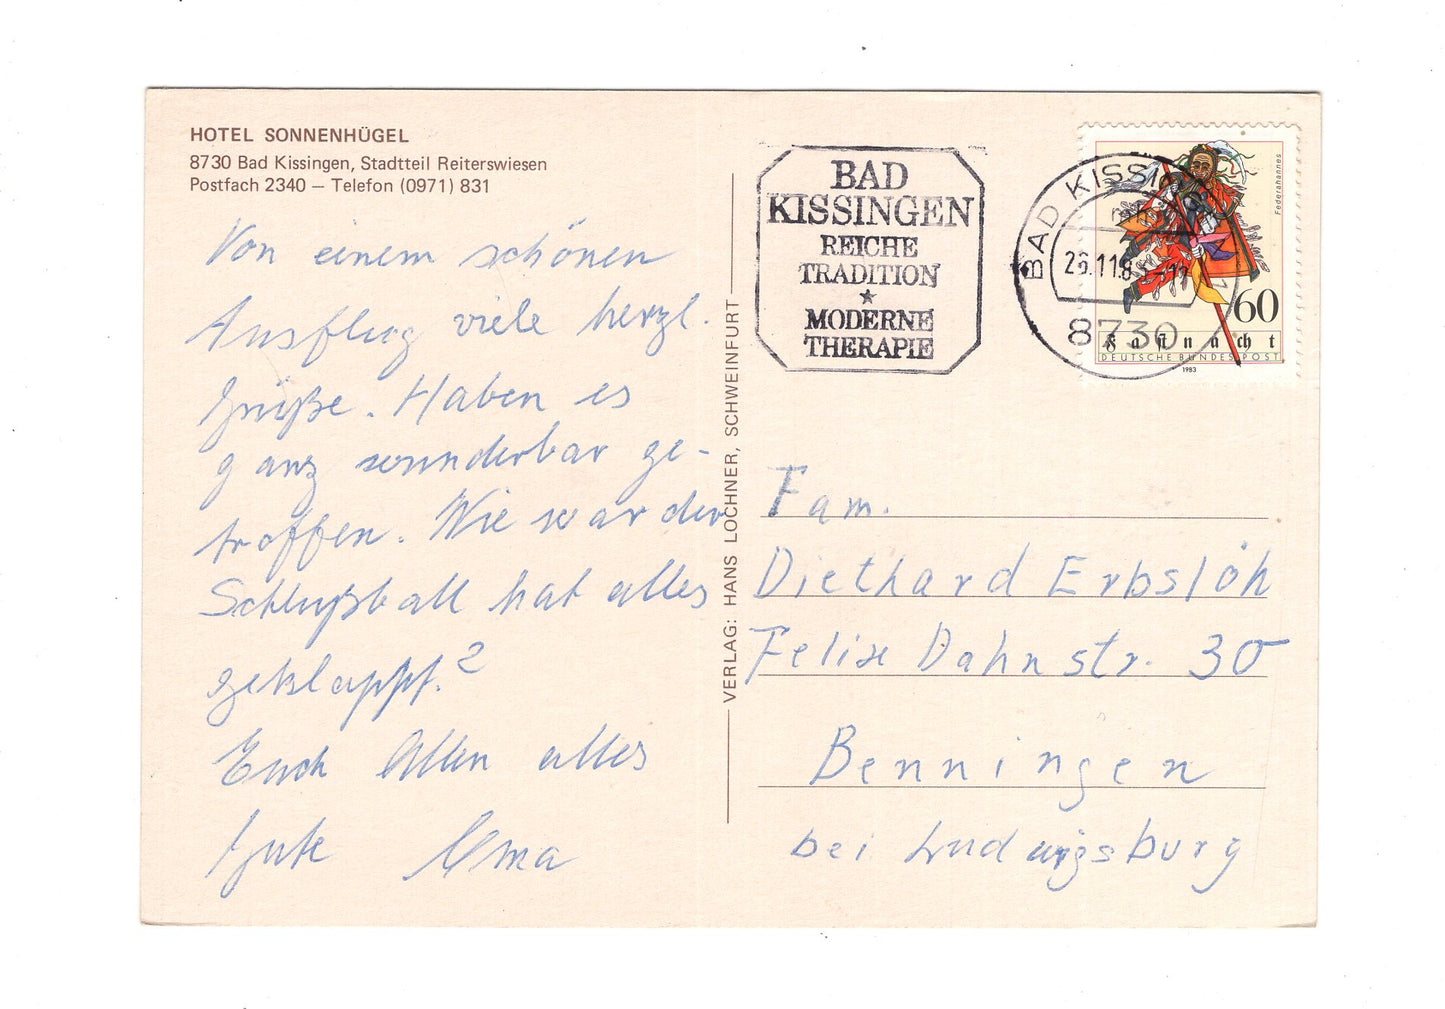 HOTEL SONNENHÜGEL
8730 Bad Kissingen, Stadtteil Reiterswiesen
Postfach 2340 — Telefon (0971) 831
Von einem schönen
Ausflug viele herzl.
Grüße. Haben es
ganz wunderbar ge-
troffen. Wie war der
Schlußball hat alles
geklappt?
Euch Allen alles
Gute Oma
VERLAG: HANS LOCHNER, SCHWEINFURT
BAD
KISSINGEN
REICHE
TRADITION
★
MODERNE
THERAPIE
BAD KISSINGEN
26.11.8
8730
Federahannes
60
Fastnacht
DEUTSCHE BUNDESPOST
1983
Fam.
Diethard Erbslöh
Felix Dahnstr. 30
Benningen
bei Ludwigsburg